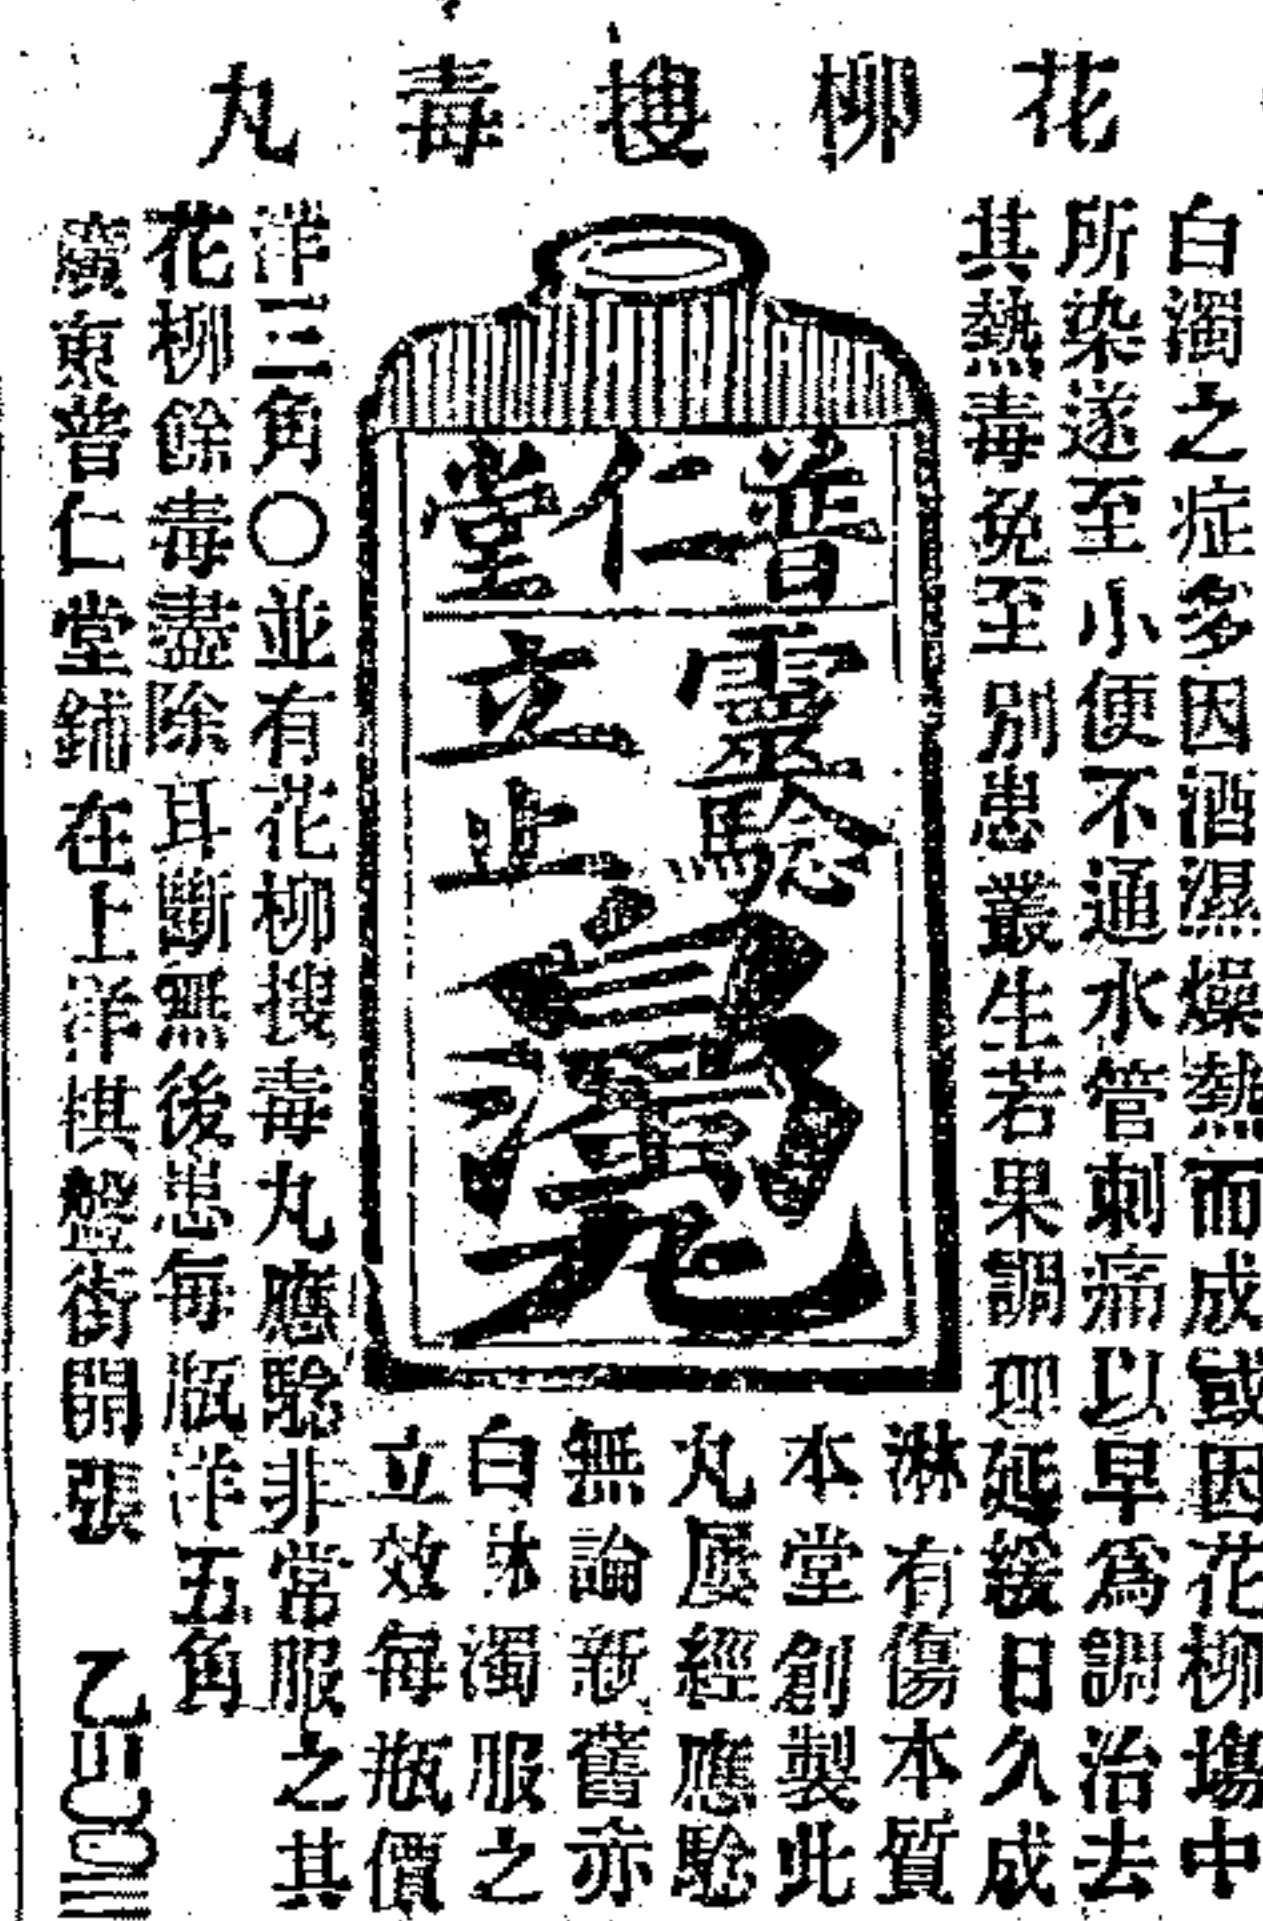 花柳搜毒丸
白濁之症多因酒濕燥熱而成或因花柳塲中
所染遂至小便不通水管刺痛以早爲調治去
其熱毒免至別患叢生若果調理延緩日久成
淋有傷本質
本堂創製此
丸屢經應騐
無論新舊亦
白淋濁服之
立效每瓶價
洋三角〇並有花柳搜毒丸應騐非常服之其
花柳餘毒盡除耳斷無後患每瓶洋五角
廣東普仁堂鋪在上洋棋盤街開張
普仁堂
靈騐
立止
白濁丸